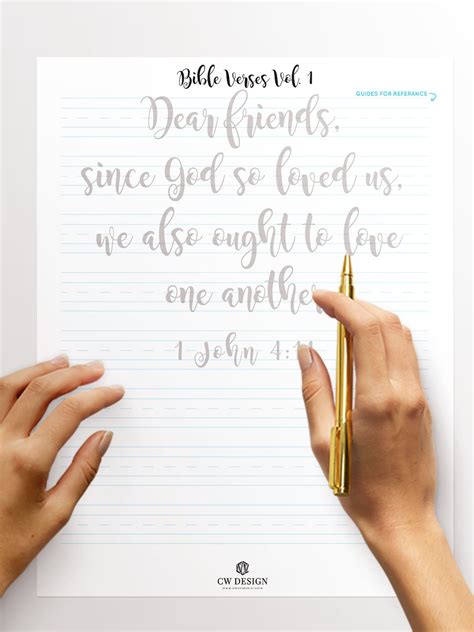 Bible Verses Vol. 1
GUIDES FOR REFERANCE
Dear friends,
since God so loved us,
we also ought to love
one another
1 John 4:11
CW DESIGN